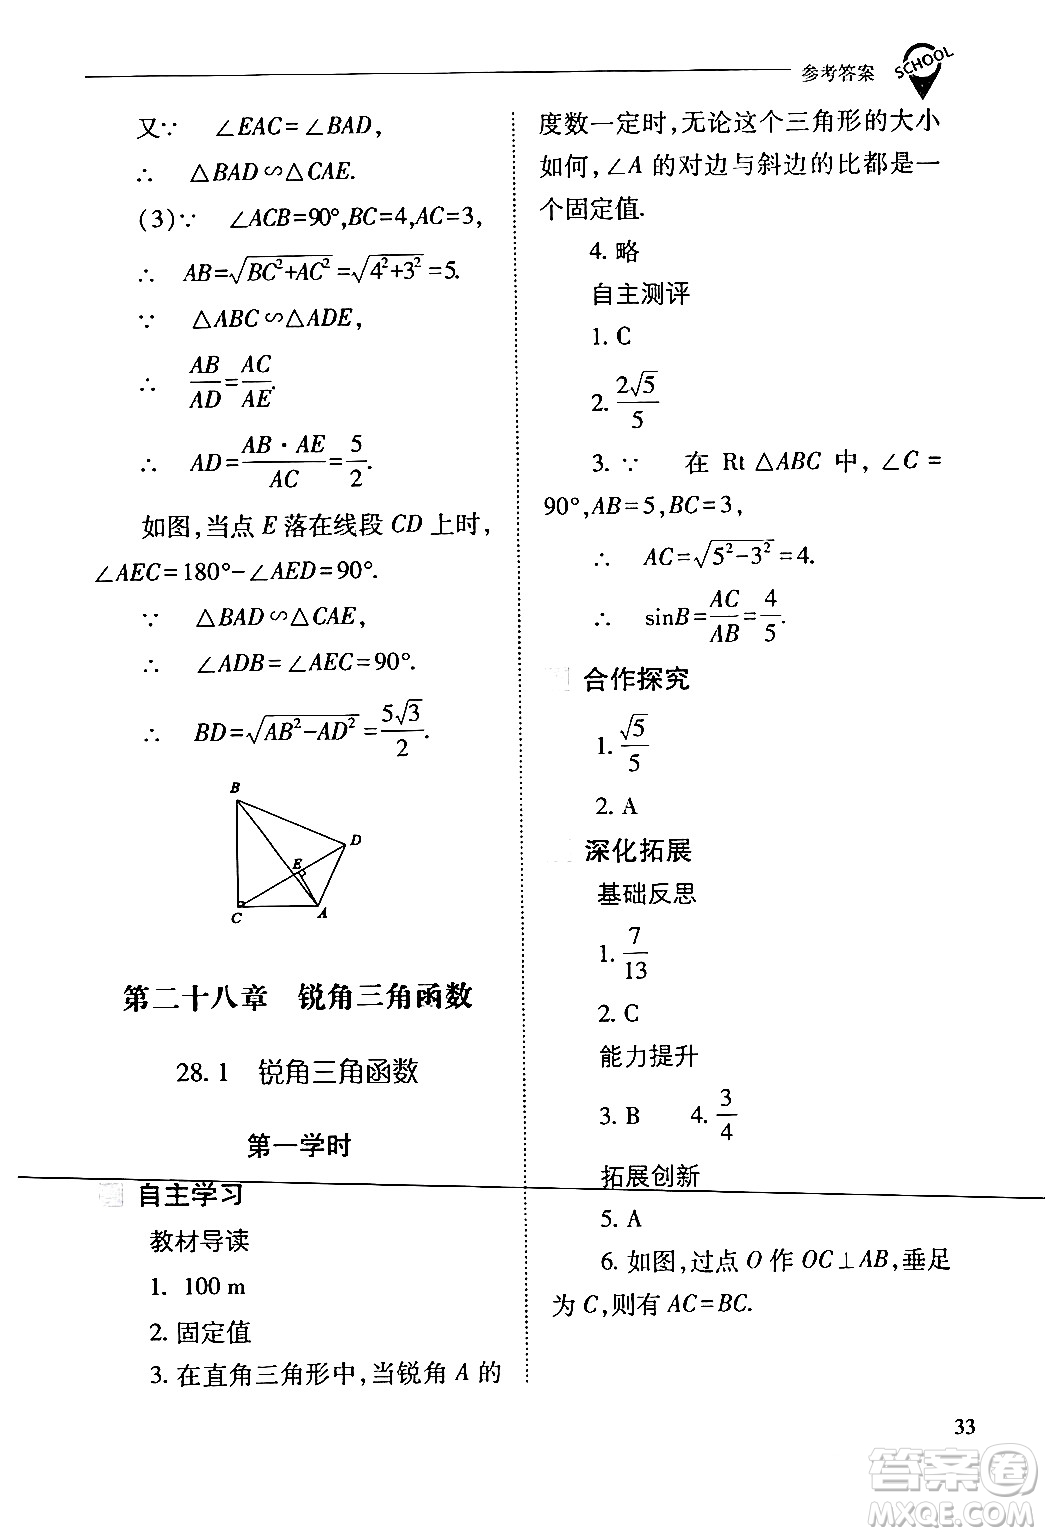 参考答案
SCHOOL
又∵ ∠EAC=∠BAD,
∴ △BAD∽△CAE.
(3)∵ ∠ACB=90°,BC=4,AC=3,
∴ AB=√(BC²+AC²)=√(4²+3²)=5.
∵ △ABC∽△ADE,
∴ AB/AD=AC/AE.
∴ AD=AB·AE/AC=5/2.
如图,当点 E 落在线段 CD 上时,
∠AEC=180°-∠AED=90°.
∵ △BAD∽△CAE,
∴ ∠ADB=∠AEC=90°.
∴ BD=√(AB²-AD²)=5√3/2.
B
D
E
C
A
第二十八章 锐角三角函数
28.1 锐角三角函数
第一学时
自主学习
教材导读
1. 100 m
2. 固定值
3. 在直角三角形中,当锐角 A 的
度数一定时,无论这个三角形的大小
如何,∠A 的对边与斜边的比都是一
个固定值.
4. 略
自主测评
1. C
2. 2√5/5
3. ∵ 在 Rt△ABC 中,∠C=
90°,AB=5,BC=3,
∴ AC=√(5²-3²)=4.
∴ sinB=AC/AB=4/5.
合作探究
1. √5/5
2. A
深化拓展
基础反思
1. 7/13
2. C
能力提升
3. B 4. 3/4
拓展创新
5. A
6. 如图,过点 O 作 OC⊥AB,垂足
为 C,则有 AC=BC.
33
答案圈
MXQE.COM